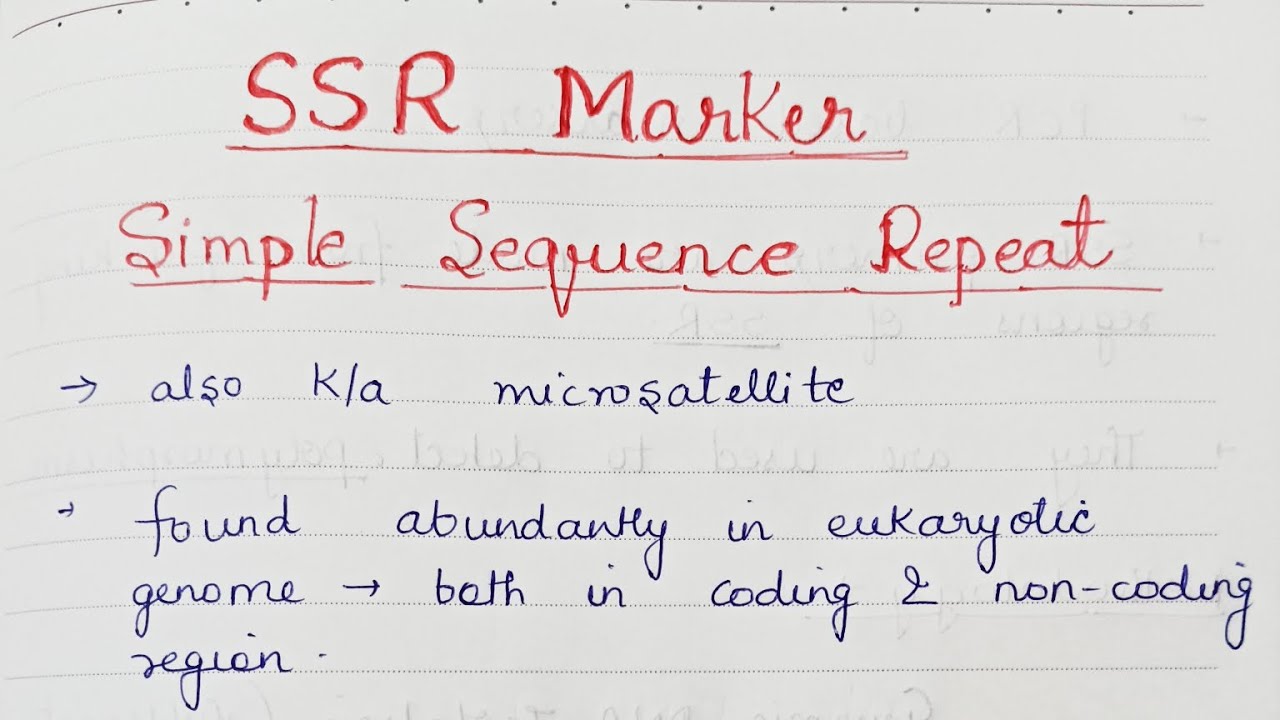 SSR Marker
Simple Sequence Repeat
→ also K/a microsatellite
→ found abundantly in eukaryotic
genome → both in coding & non-coding
region.